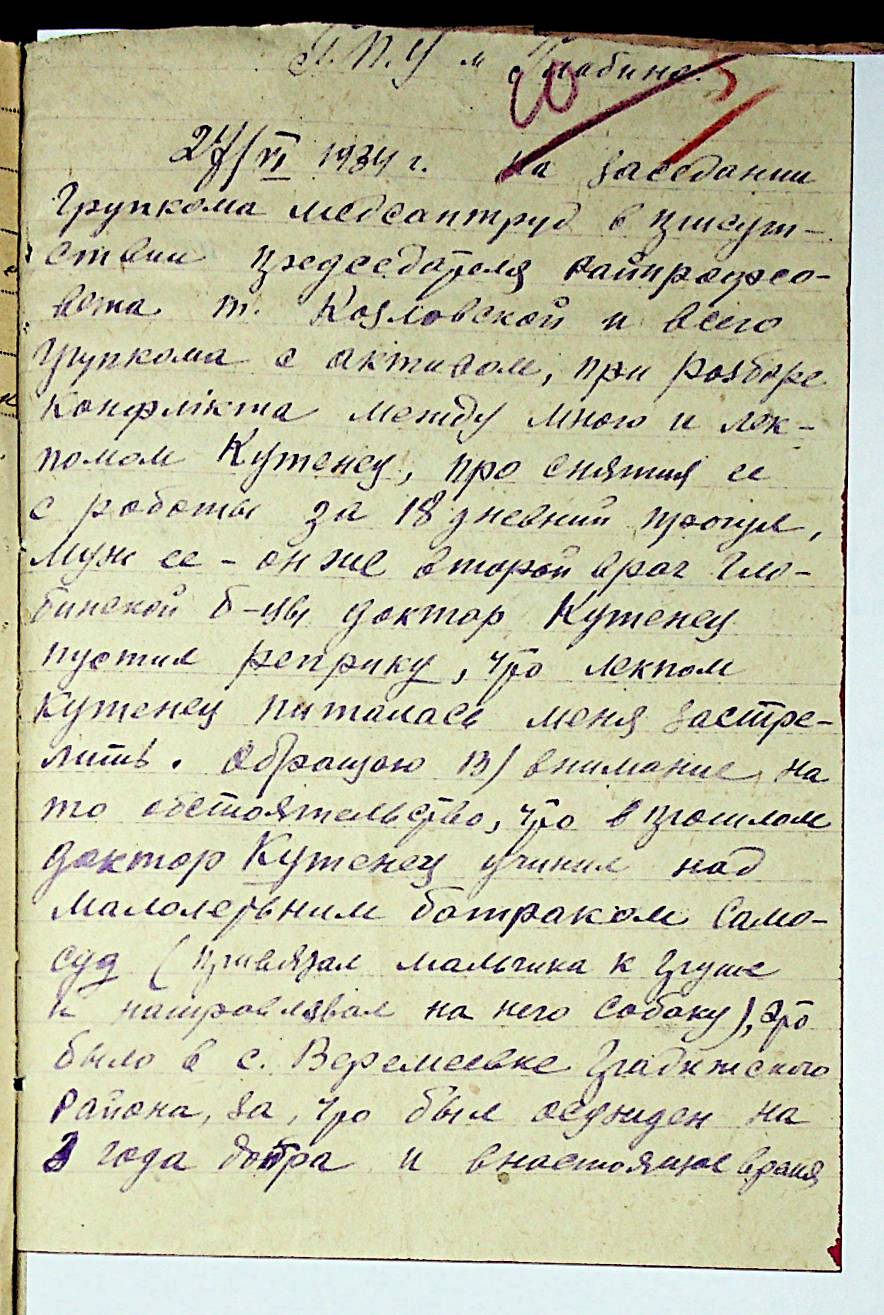 Г.П.У м Глобино.
27/VI 1934 г. На заседании
Групкома медсантруд в присут-
ствии председателя Райпрофсо-
вета т. Козловской и всего
Групкома с активом, при розборе
Конфлікта между мною и лек-
помом Кутенец, про снятия ее
с работы за 18 дневний прогул,
муж ее - он же второй врач Гло-
бинской б-цы доктор Кутенец
пустил реприку, что лекпом
Кутенец питалась меня застре-
лить. Обращаю внимание на
то обстоятельство, что в прошлом
доктор Кутенец учинил над
малолетьним батраком само-
суд (привязал мальчика к груше
и натровлявал на него собаку), это
было в с. Веремеевке Градижского
Района, за, что был осужден на
года допра и внастоящее время